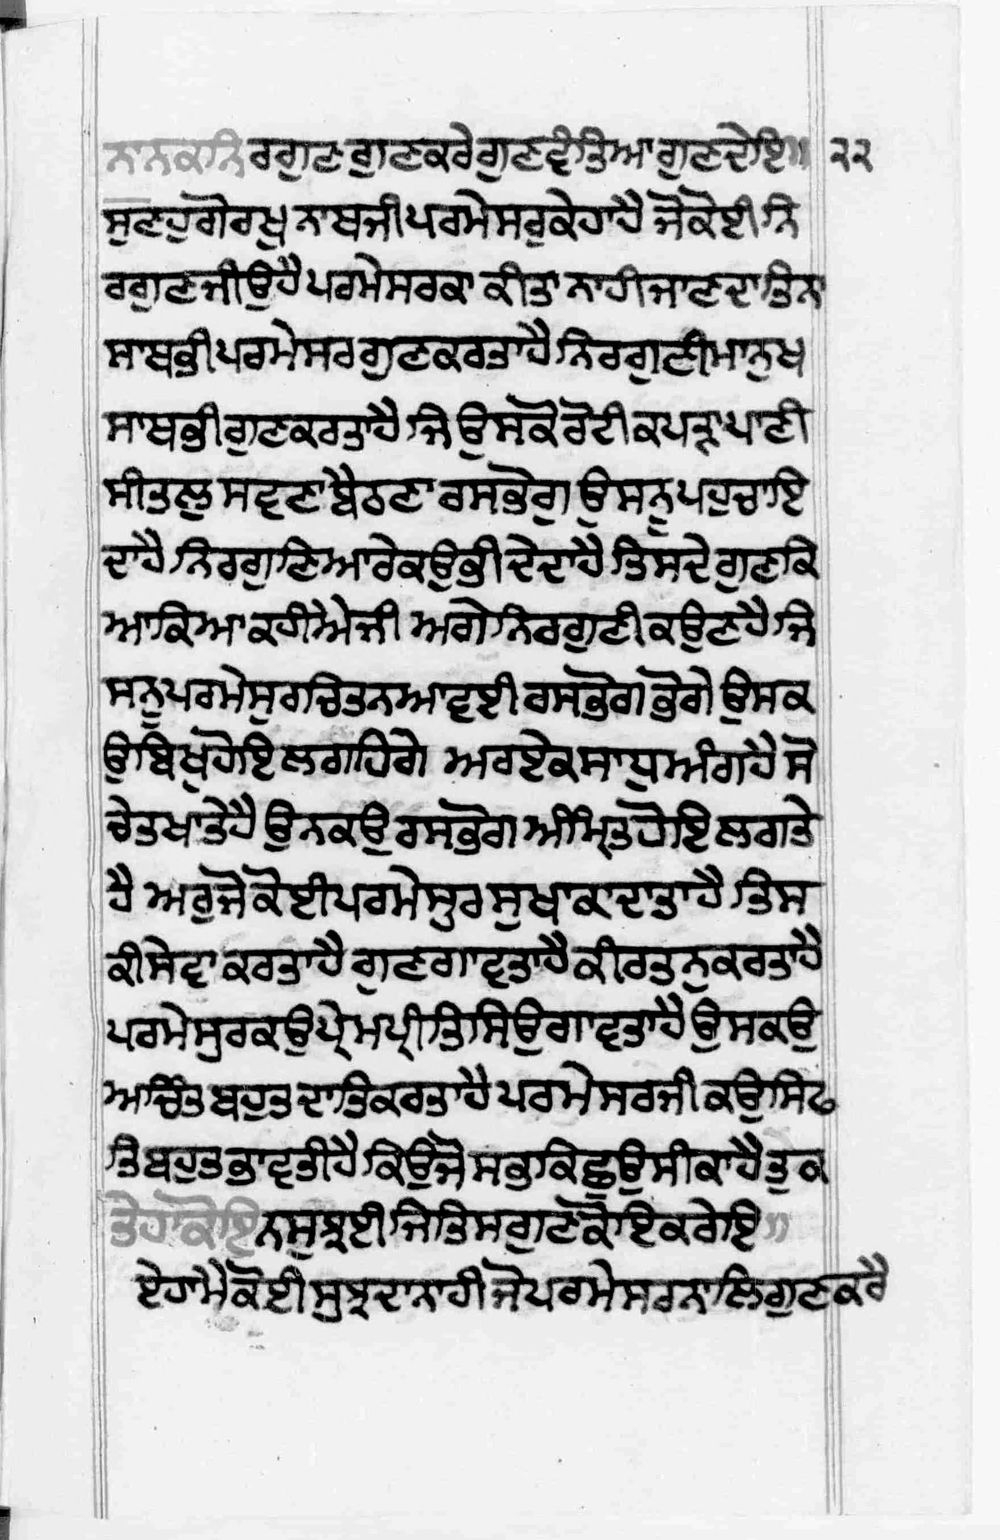 ਨਾਨਕਨਿਰਗੁਣਗੁਣਕਰੇਗੁਣਵੰਤਿਆਗੁਣਦੇਇ॥ ੨੨
ਸੁਣਹੁਗੋਰਖੁਨਾਥਜੀਪਰਮੇਸਰੁਕੇਹਾਹੈ ਜੋਕੋਈਨਿ
ਰਗੁਣਜੀਉਹੈਪਰਮੇਸਰਕਾ ਕੀਤਾ ਨਾਹੀਜਾਣਦਾਤਿਨਾ
ਸਾਥਭੀਪਰਮੇਸਰਗੁਣਕਰਤਾਹੈਨਿਰਗੁਣੀਮਾਨੁਖ
ਸਾਥਭੀਗੁਣਕਰਤਾਹੈ ਜਿਉਸਕੋਰੋਟੀਕਪੜਾਪਾਣੀ
ਸੀਤਲੁ ਸਵਣਾਬੈਠਣਾ ਰਸਭੋਗੁ ਉਸਨੂਪਹੁਚਾਇ
ਦਾਹੈਨਿਰਗੁਣਿਆਰੇਕਉਭੀਦੇਦਾਹੈ ਤਿਸਦੇਗੁਣਕਿ
ਆਕਿਆਕਹੀਐਜੀ ਅਗੇਨਿਰਗੁਣੀਕਉਣਹੈ ਜਿ
ਸਨੂਪਰਮੇਸੁਰਚਿਤਨਆਵਈ ਰਸਭੋਗਭੋਗੇ ਉਸਕ
ਉਬਿਖੁਹੋਇਲਗਹਿਗੇ ਅਰਏਕਸਾਧਅੰਗਹੈ ਸੋ
ਚੇਤਖਾਤੇਹੈ ਉਨਕਉਰਸਭੋਗ ਅੰਮ੍ਰਿਤਹੋਇਲਗਤੇ
ਹੈ ਅਰੁਜੋਕੋਈਪਰਮੇਸੁਰਸੁਖਾਕਾਦਾਤਾਹੈ ਤਿਸ
ਕੀਸੇਵਾਕਰਤਾਹੈ ਗੁਣਗਾਵਤਾਹੈਕੀਰਤਨੁਕਰਤਾਹੈ
ਪਰਮੇਸੁਰਕਉਪ੍ਰੇਮਪ੍ਰੀਤਿਸਿਉਗਾਵਤਾਹੈ ਉਸਕਉ
ਅਚਿੰਤਬਹੁਤਦਾਤਿਕਰਤਾਹੈ ਪਰਮੇਸਰਜੀਕਉਸਿਫ
ਤਿਬਹੁਤਭਾਵਤੀਹੈਕਿਉਜੋਸਭਾਕਿਛੁਉਸੀਕਾਹੈਤੁਕ
ਤੇਹਾਕੋਇਨਸੁਝਈਜਿਤਿਸਗੁਣੋਕੋਇਕਰੇਇ॥
ਏਹਾਮੈਕੋਈਸੁਝਦਾਨਾਹੀਜੋਪਰਮੇਸਰਨਾਲਿਗੁਣਕਰੈ